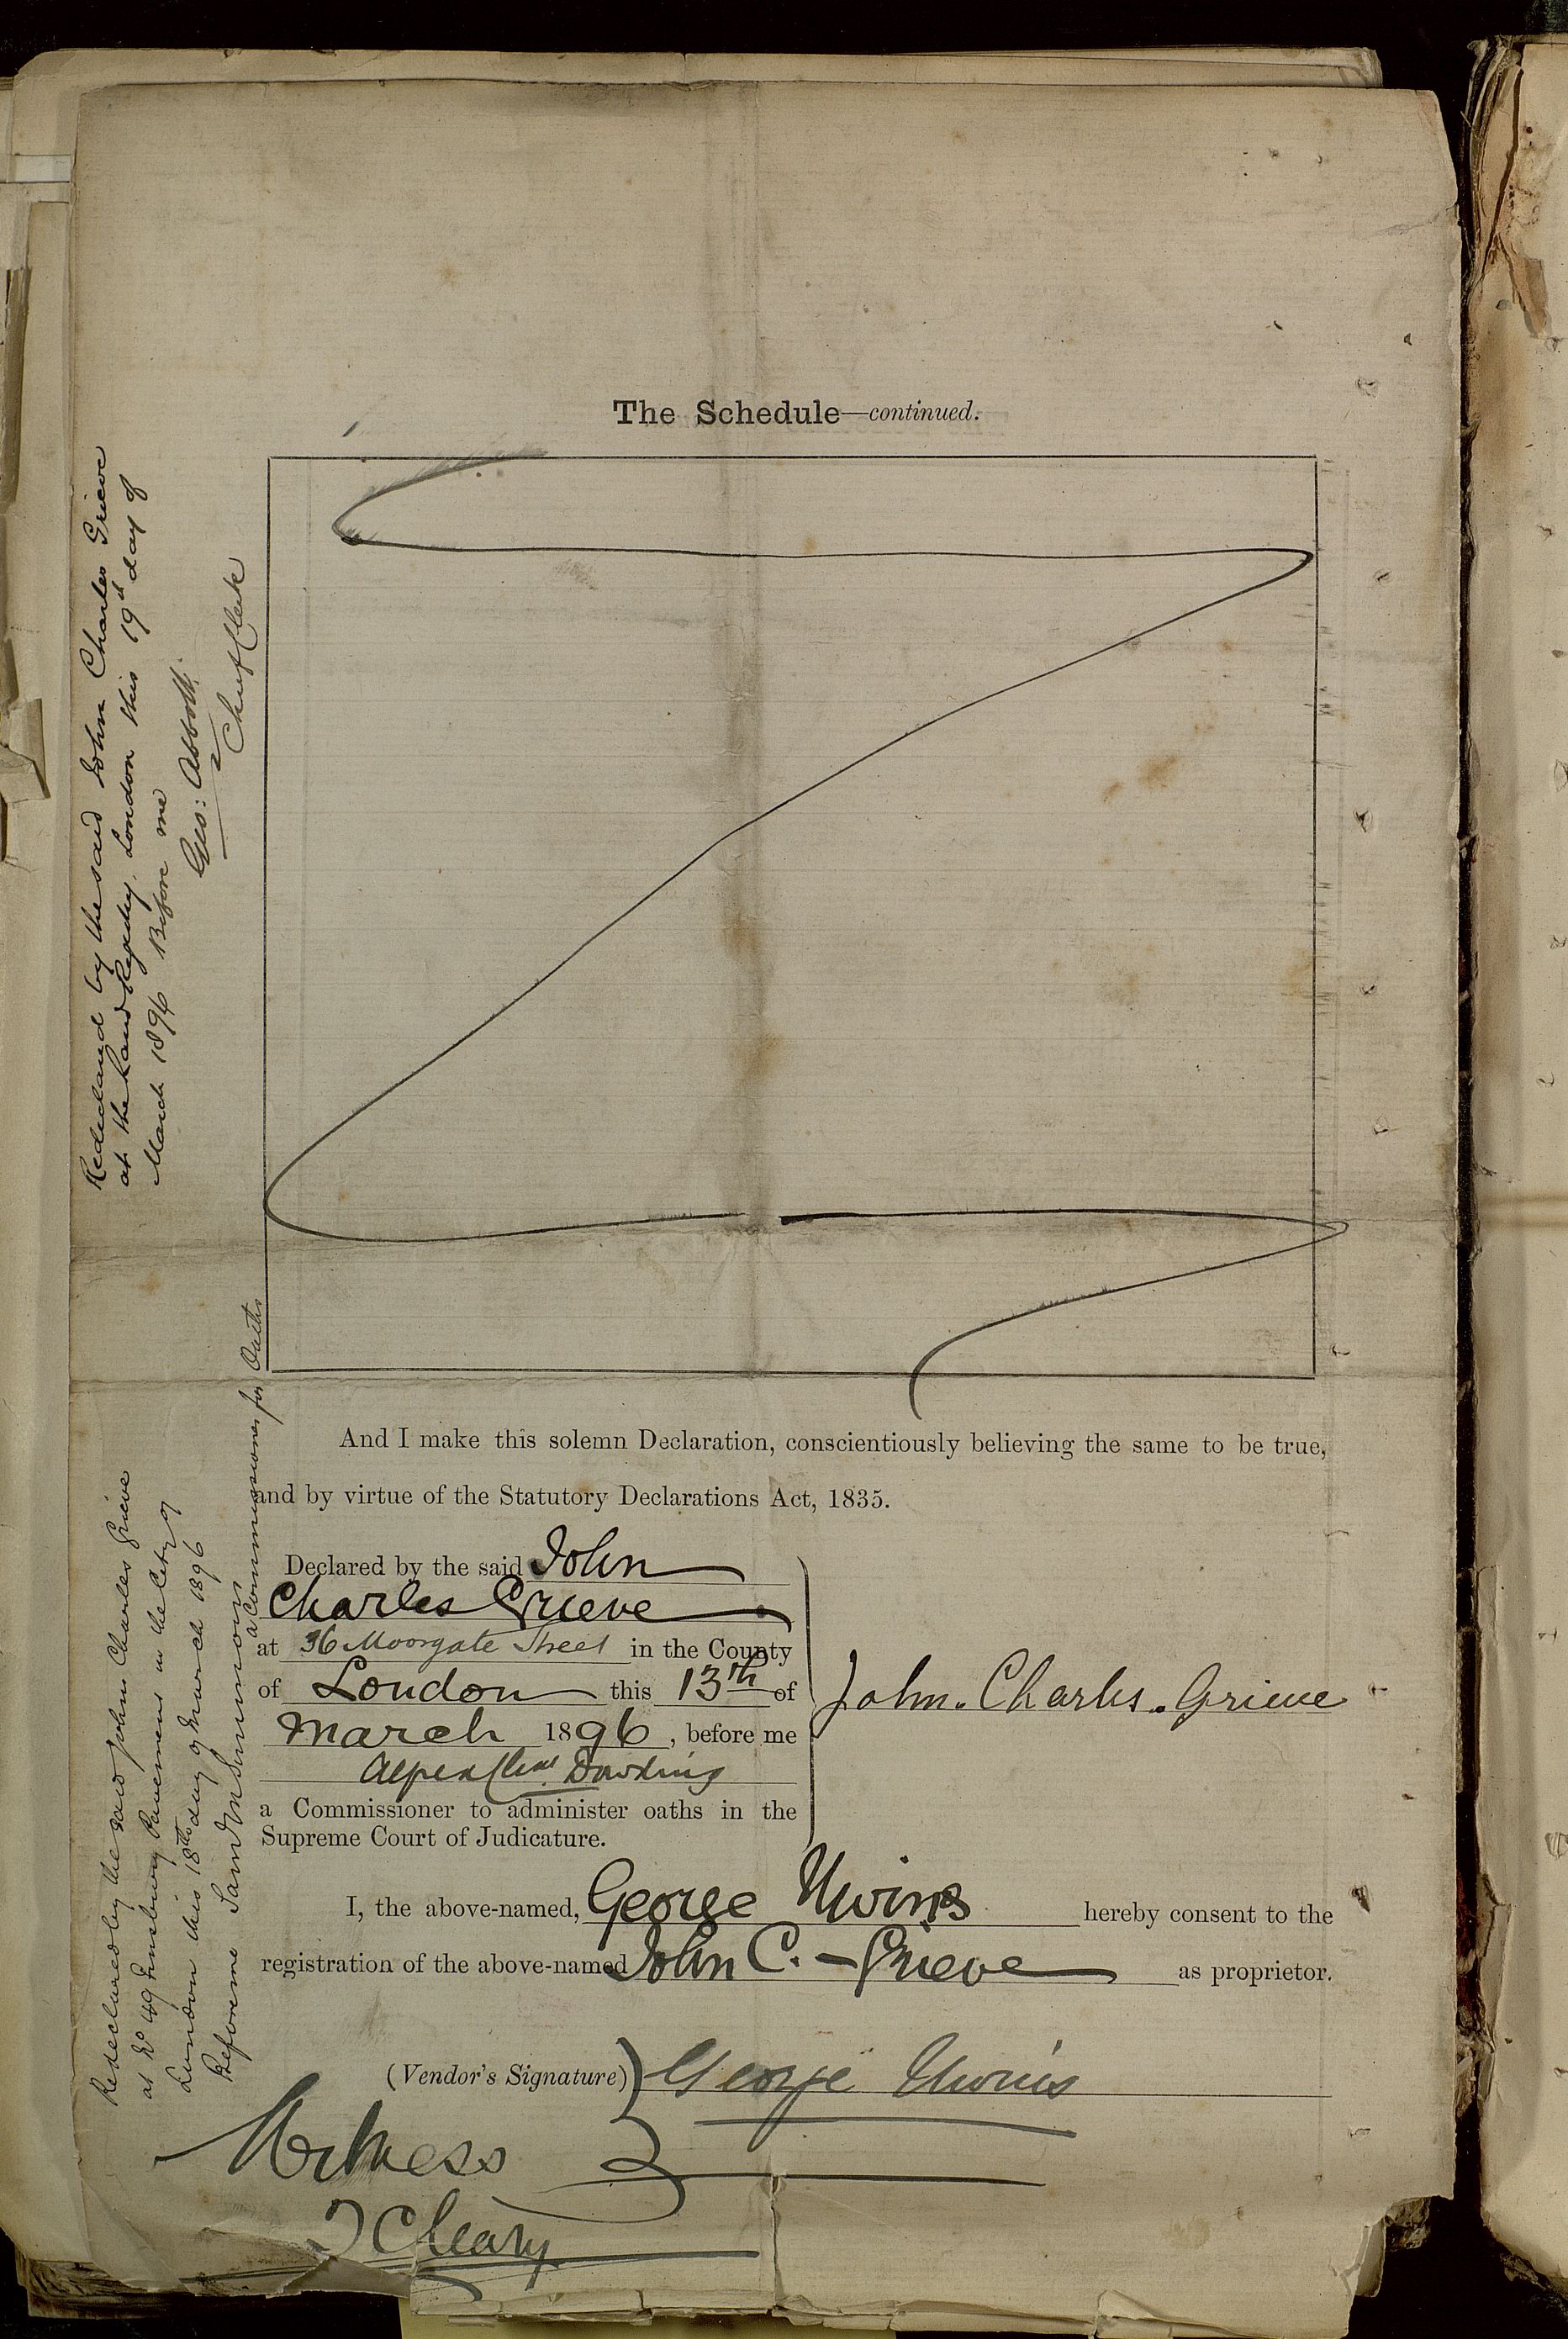 The Schedule—continued.
And I make this solemn Declaration, conscientiously believing the same to be true,
and by virtue of the Statutory Declarations Act, 1835.
Declared by the said John
Charles Grieve
at 36 Moorgate Street in the County
of London this 13th of
March 1896, before me
Dowding
a Commissioner to administer oaths in the
Supreme Court of Judicature.
John. Charles. Grieve
I, the above-named, George Uwins hereby consent to the
registration of the above-named John C. Grieve as proprietor.
(Vendor's Signature) George Uwins
Witness
J Cleary
Redeclared by the said John Charles Grieve
at the Land Registry. London this 19th day of
March 1896 Before me
Geo: Abbott.
Chief Clerk
Redeclared by the said John Charles Grieve
at No 49 Finsbury Pavement in the City of
London this 18th day of March 1896
Before me
a Commissioner for Oaths